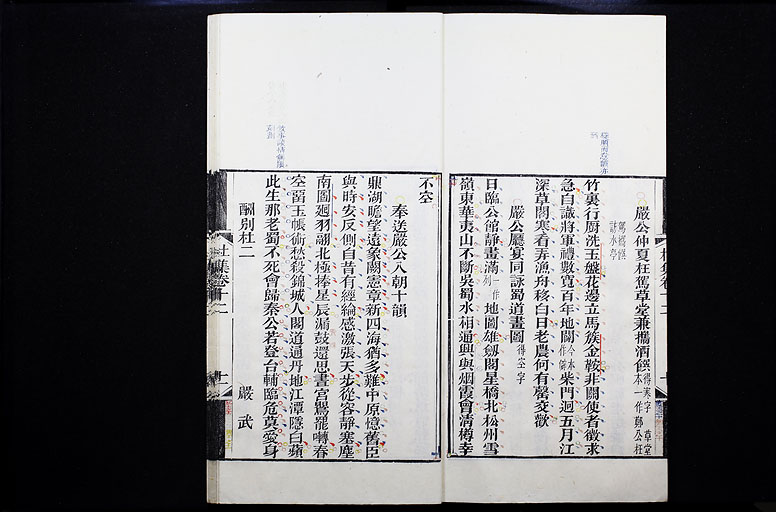 嚴公仲夏枉駕草堂兼攜酒饌得寒字 草堂本一作鄭公枉駕攜饌訪水亭
竹裏行厨洗玉盤花邊立馬簇金鞍非關使者徵求
急自識將軍禮數寬百年地闢柴門迥五月江
深草閣寒看弄漁舟移白日老農何有罄交歡
嚴公廳宴同詠蜀道畫圖得空字
日臨公館靜畫滿一作列地圖雄劒閣星橋北松州雪
嶺東華夷山不斷吳蜀水相通興與烟霞會清罇幸
不空
奉送嚴公入朝十韻
鼎湖瞻望遠象闕憲章新四海猶多難中原憶舊臣
與時安反側自昔有經綸感激張天步從容靜塞塵
南圖廻羽翮北極捧星辰漏鼓還思晝宮鶯罷囀春
空留玉帳術愁殺錦城人閣道通丹地江潭隱白蘋
此生那老蜀不死會歸秦公若登台輔臨危莫愛身
酬別杜二 嚴武
杜集卷十一